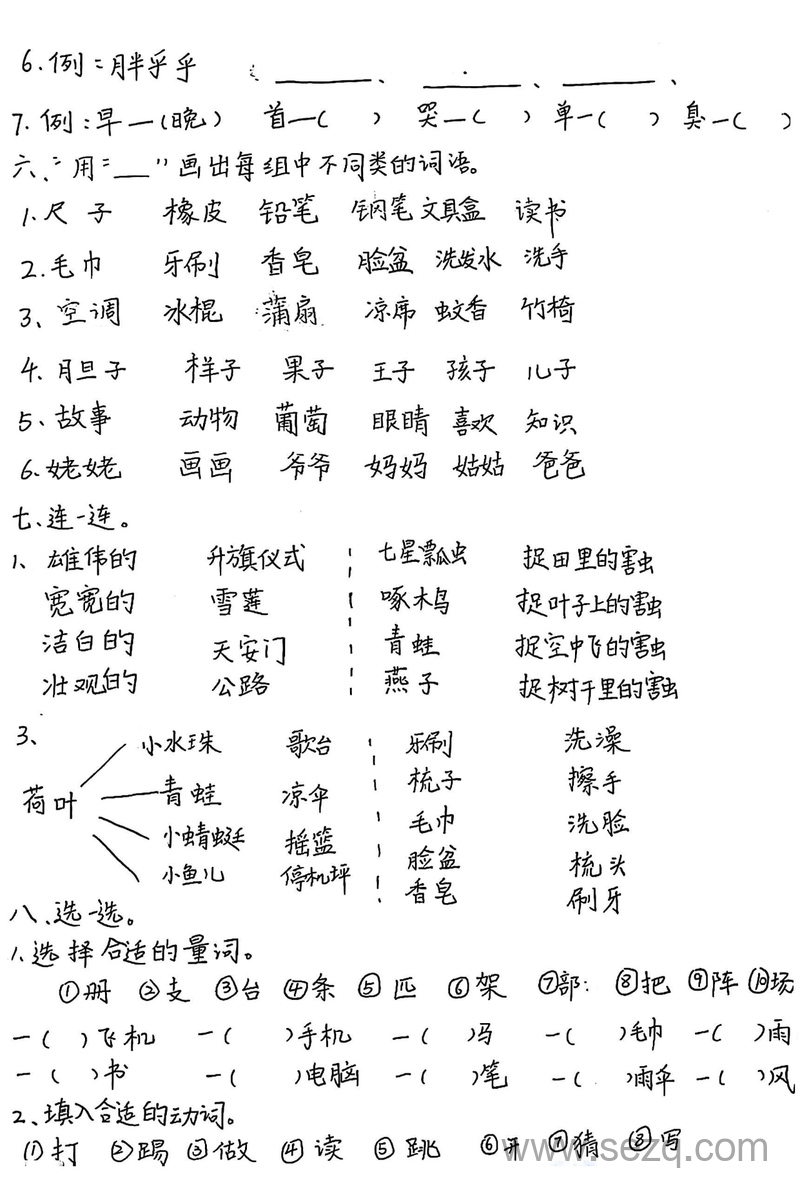 6.例:胖乎乎 ______、______、______、
7.例:早—(晚) 首—( ) 哭—( ) 单—( ) 臭—( )
六、"用"___"画出每组中不同类的词语。
1.尺子 橡皮 铅笔 钢笔 文具盒 读书
2.毛巾 牙刷 香皂 脸盆 洗发水 洗手
3、空调 冰棍 蒲扇 凉席 蚊香 竹椅
4.胆子 样子 果子 王子 孩子 儿子
5、故事 动物 葡萄 眼睛 喜欢 知识
6.姥姥 画画 爷爷 妈妈 姑姑 爸爸
七、连一连。
1、雄伟的 升旗仪式 七星瓢虫 捉田里的害虫
宽宽的 雪莲 啄木鸟 捉叶子上的害虫
洁白的 天安门 青蛙 捉空中飞的害虫
壮观的 公路 燕子 捉树干里的害虫
3、
小水珠 歌台 牙刷 洗澡
荷叶 青蛙 凉伞 梳子 擦手
小蜻蜓 摇篮 毛巾 洗脸
小鱼儿 停机坪 脸盆 梳头
香皂 刷牙
八、选一选。
1.选择合适的量词。
①册 ②支 ③台 ④条 ⑤匹 ⑥架 ⑦部 ⑧把 ⑨阵 ⑩场
一( )飞机 一( )手机 一( )马 一( )毛巾 一( )雨
一( )书 一( )电脑 一( )笔 一( )雨伞 一( )风
2、填入合适的动词。
①打 ②踢 ③做 ④读 ⑤跳 ⑥开 ⑦猜 ⑧写
www.sezq.com